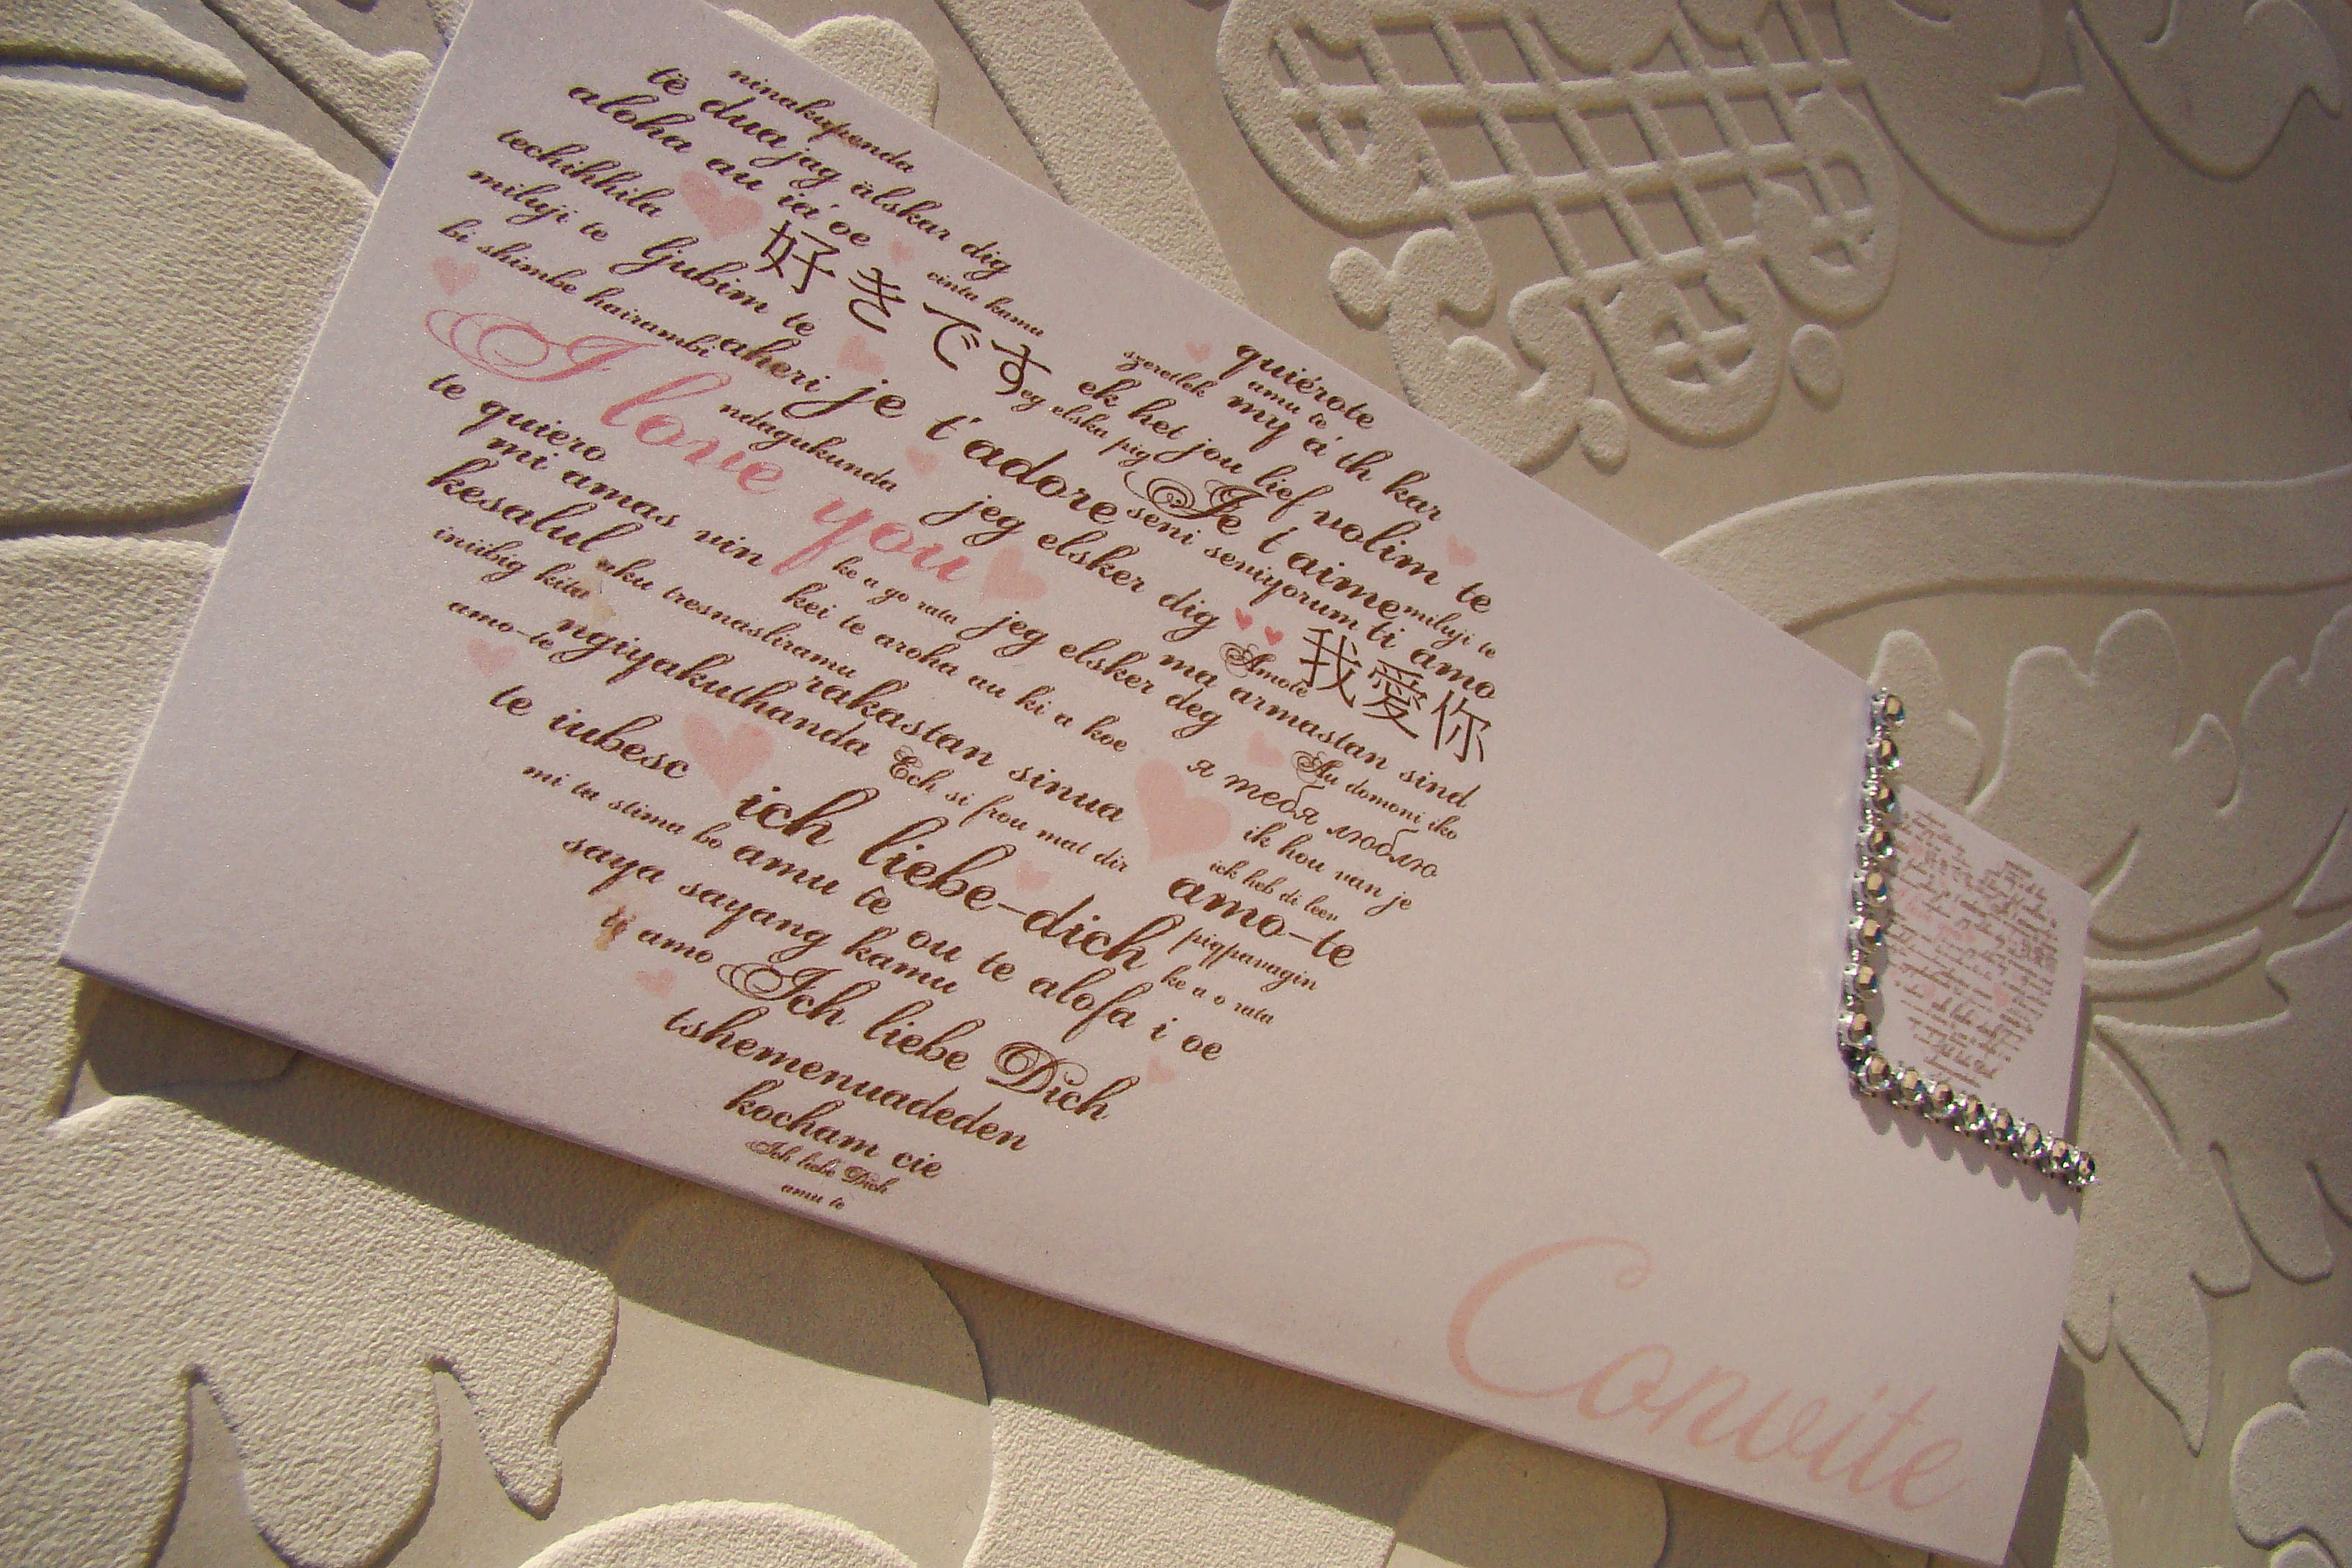 ninakupenda
të dua jag älskar dig
aloha au ia' oe
techihhila
cinta kamu
miluji te ljubim te
好きです
bi shimbe hairambi aheri je t'adore
quiérote
szeretlek amu te
ek het jou lief my a' th kar
eg elska pig
I love you
ndagukunda
Je t'aime volim te
te quiero
mi amas vin
jeg elsker dig
seni seniyorum ti amo
miluji te
kesalul
ke a go rata jeg elsker deg
Amote 我愛你
iniibig kita
aku tresnasliramu
kei te aroha au ki a koe
ma armastan sind
amo-te
ngiyakuthanda rakastan sinua
Au domoni iko
я тебя люблю
te iubesc
Ech si frou mat dir
ik hou van je
ick heb di leev
mi ta stima bo
ich liebe-dich
amo-te
saya sayang kamu
amu te
piqpavagin
ou te alofa i oe
ke a o rata
ti amo Ich liebe Dich
tshemenuadeden
kocham cie
Ich liebe Dich
amu te
Convite